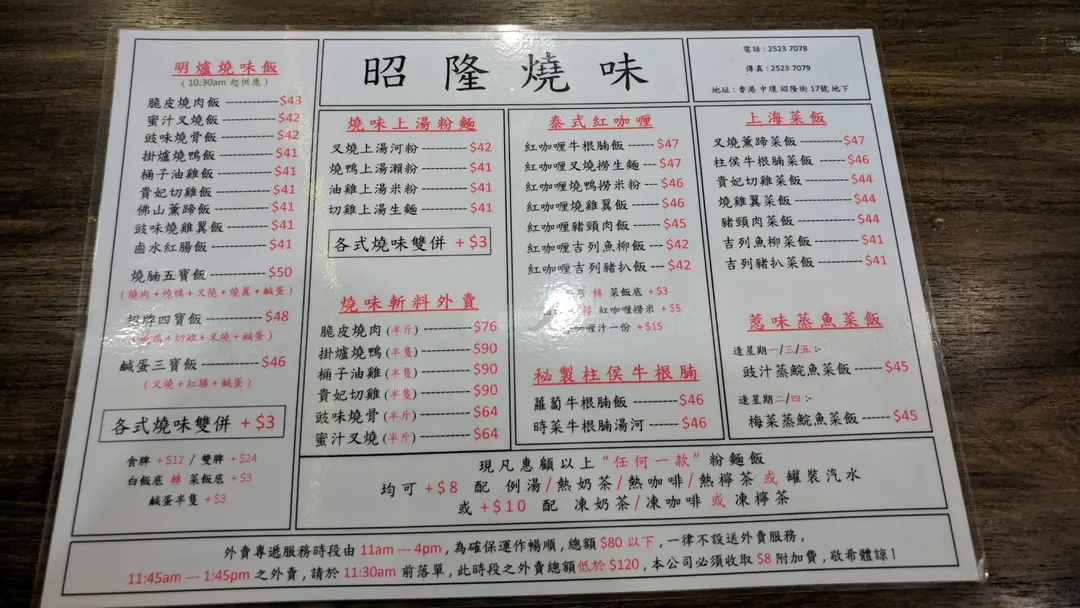 昭隆燒味
電話 : 2523 7078
傳真 : 2523 7079
地址 : 香港 中環 昭隆街 17號 地下
明爐燒味飯
( 10:30am 起供應 )
脆皮燒肉飯 ------------ $43
蜜汁叉燒飯 ------------ $42
豉味燒骨飯 ------------ $42
掛爐燒鴨飯 ------------ $41
桶子油雞飯 ------------ $41
貴妃切雞飯 ------------ $41
佛山薰蹄飯 ------------ $41
豉味燒雞翼飯 --------- $41
鹵水紅腸飯 ------------ $41
燒腩五寶飯 ------------ $50
( 燒肉 + 燒鴨 + 叉燒 + 燒翼 + 鹹蛋 )
招牌四寶飯 ------------ $48
+ 切雞 + 叉燒 + 鹹蛋 )
鹹蛋三寶飯 ------------ $46
( 叉燒 + 紅腸 + 鹹蛋 )
各式燒味雙併 + $3
食牌 +$12 / 雙牌 +$24
白飯底 轉 菜飯底 +$3
鹹蛋半隻 +$3
燒味上湯粉麵
叉燒上湯河粉 ---------- $42
燒鴨上湯瀨粉 ---------- $41
油雞上湯米粉 ---------- $41
切雞上湯生麵 ---------- $41
各式燒味雙併 + $3
燒味斬料外賣
脆皮燒肉 (半斤) ---------- $76
掛爐燒鴨 (半隻) ---------- $90
桶子油雞 (半隻) ---------- $90
貴妃切雞 (半隻) ---------- $90
豉味燒骨 (半斤) ---------- $64
蜜汁叉燒 (半斤) ---------- $64
泰式紅咖喱
紅咖喱牛根腩飯 ------ $47
紅咖喱叉燒撈生麵 --- $47
紅咖喱燒鴨撈米粉 --- $46
紅咖喱燒雞翼飯 ------ $46
紅咖喱豬頸肉飯 ------ $45
紅咖喱吉列魚柳飯 --- $42
紅咖喱吉列豬扒飯 --- $42
底 轉 菜飯底 + $3
轉 紅咖喱撈米 + $5
喱汁一份 + $15
秘製柱侯牛根腩
蘿蔔牛根腩飯 --------- $46
時菜牛根腩湯河 ------ $46
上海菜飯
叉燒薰蹄菜飯 --------- $47
柱侯牛根腩菜飯 ------ $46
貴妃切雞菜飯 --------- $44
燒雞翼菜飯 ------------ $44
豬頸肉菜飯 ------------ $44
吉列魚柳菜飯 --------- $41
吉列豬扒菜飯 --------- $41
惹味蒸魚菜飯
逢星期一/三/五 :-
豉汁蒸鯇魚菜飯 ------ $45
逢星期二/四 :-
梅菜蒸鯇魚菜飯 ------ $45
現凡惠顧以上 “任何一款” 粉麵飯
均可 +$8 配 例湯/熱奶茶/熱咖啡/熱檸茶 或 罐裝汽水
或 +$10 配 凍奶茶/凍咖啡 或 凍檸茶
外賣專遞服務時段由 11am --- 4pm , 為確保運作暢順 , 總額 $80 以下 , 一律不設送外賣服務 ,
11:45am --- 1:45pm 之外賣 , 請於 11:30am 前落單 , 此時段之外賣總額低於 $120 , 本公司必須收取 $8 附加費 , 敬希體諒 !